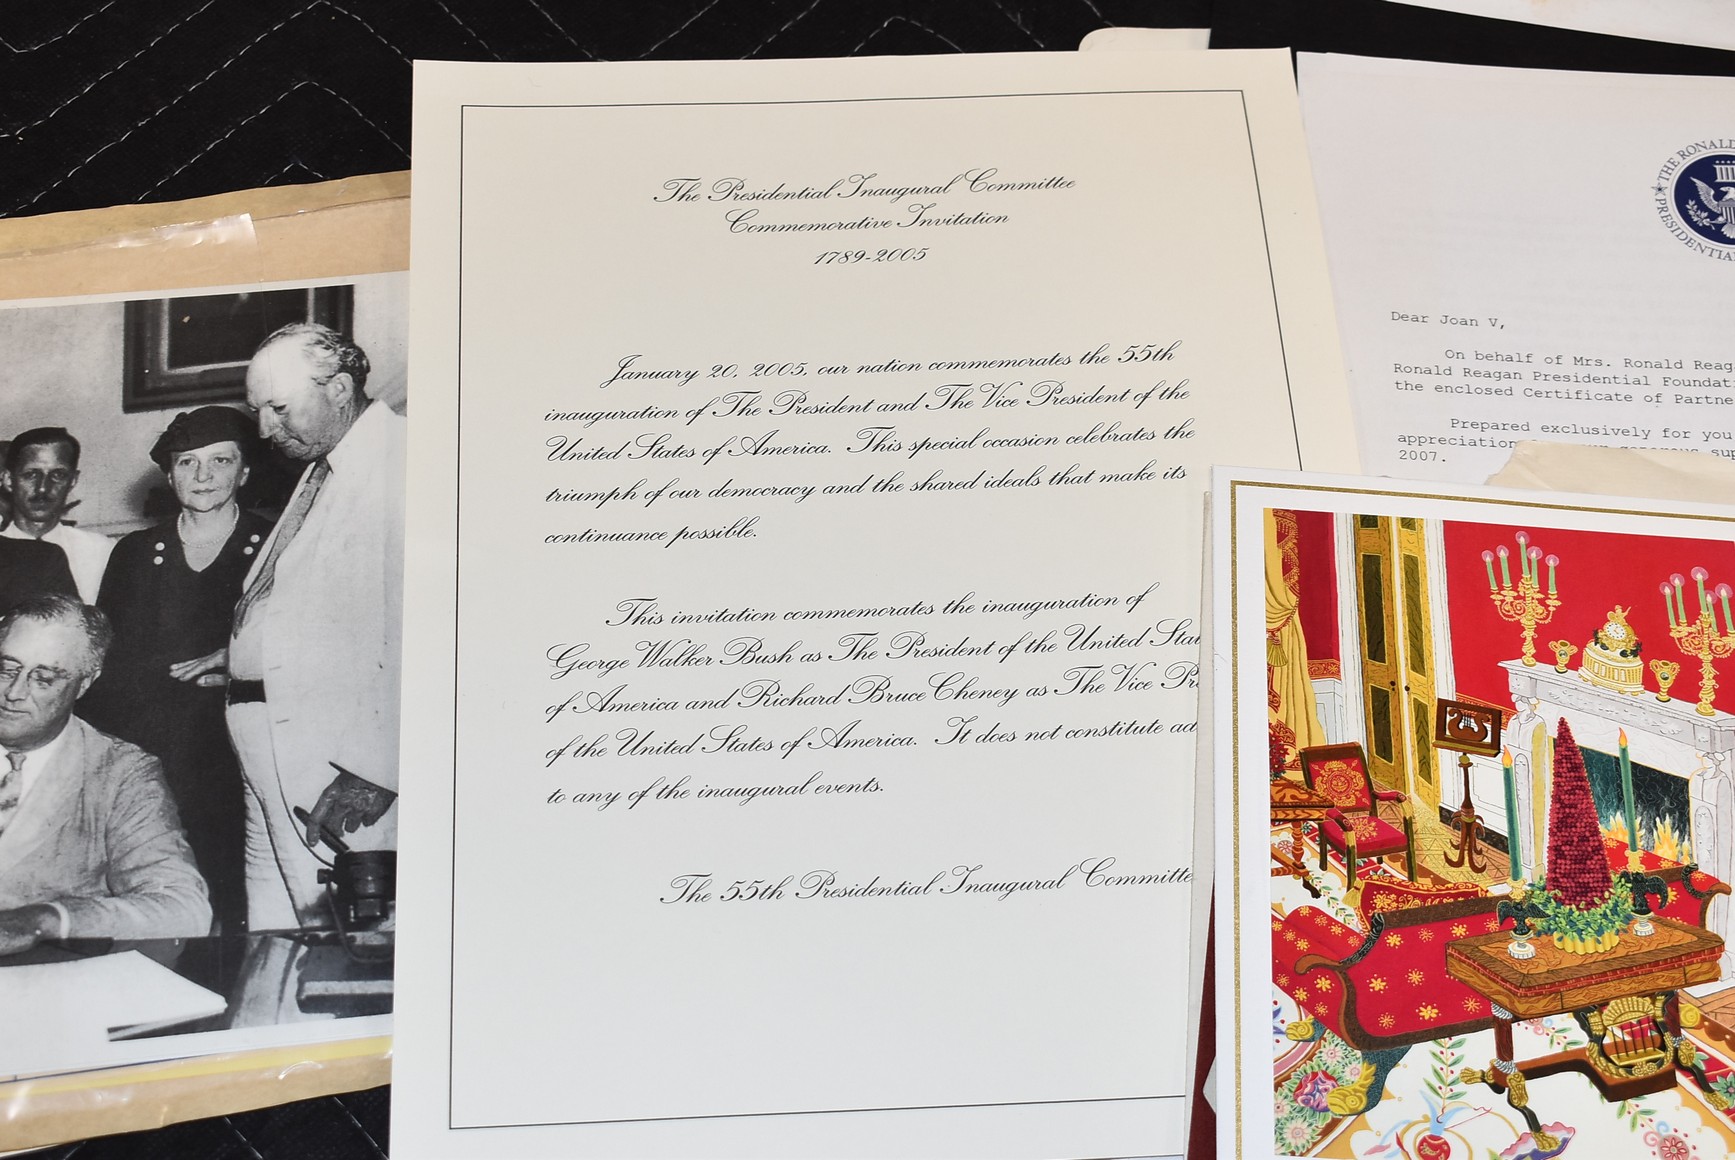 The Presidential Inaugural Committee
Commemorative Invitation
1789-2005
January 20, 2005, our nation commemorates the 55th
inauguration of The President and The Vice President of the
United States of America. This special occasion celebrates the
triumph of our democracy and the shared ideals that make its
continuance possible.
This invitation commemorates the inauguration of
George Walker Bush as The President of the United Stat
of America and Richard Bruce Cheney as The Vice Pr
of the United States of America. It does not constitute ad
to any of the inaugural events.
The 55th Presidential Inaugural Committe
THE RONALD
PRESIDENTIA
Dear Joan V,
On behalf of Mrs. Ronald Reag
Ronald Reagan Presidential Foundati
the enclosed Certificate of Partne
Prepared exclusively for you
appreciation generous sup
2007.